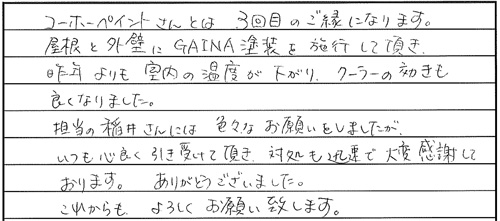 コーホーペイントさんとは 3回目のご縁になります。
屋根と外壁にGAINA塗装を施行して頂き、
昨年よりも室内の温度が下がり、クーラーの効きも
良くなりました。
担当の稲井さんには色々なお願いをしましたが、
いつも心良く引き受けて頂き、対処も迅速で大変感謝して
おります。 ありがとうございました。
これからも、よろしくお願い致します。